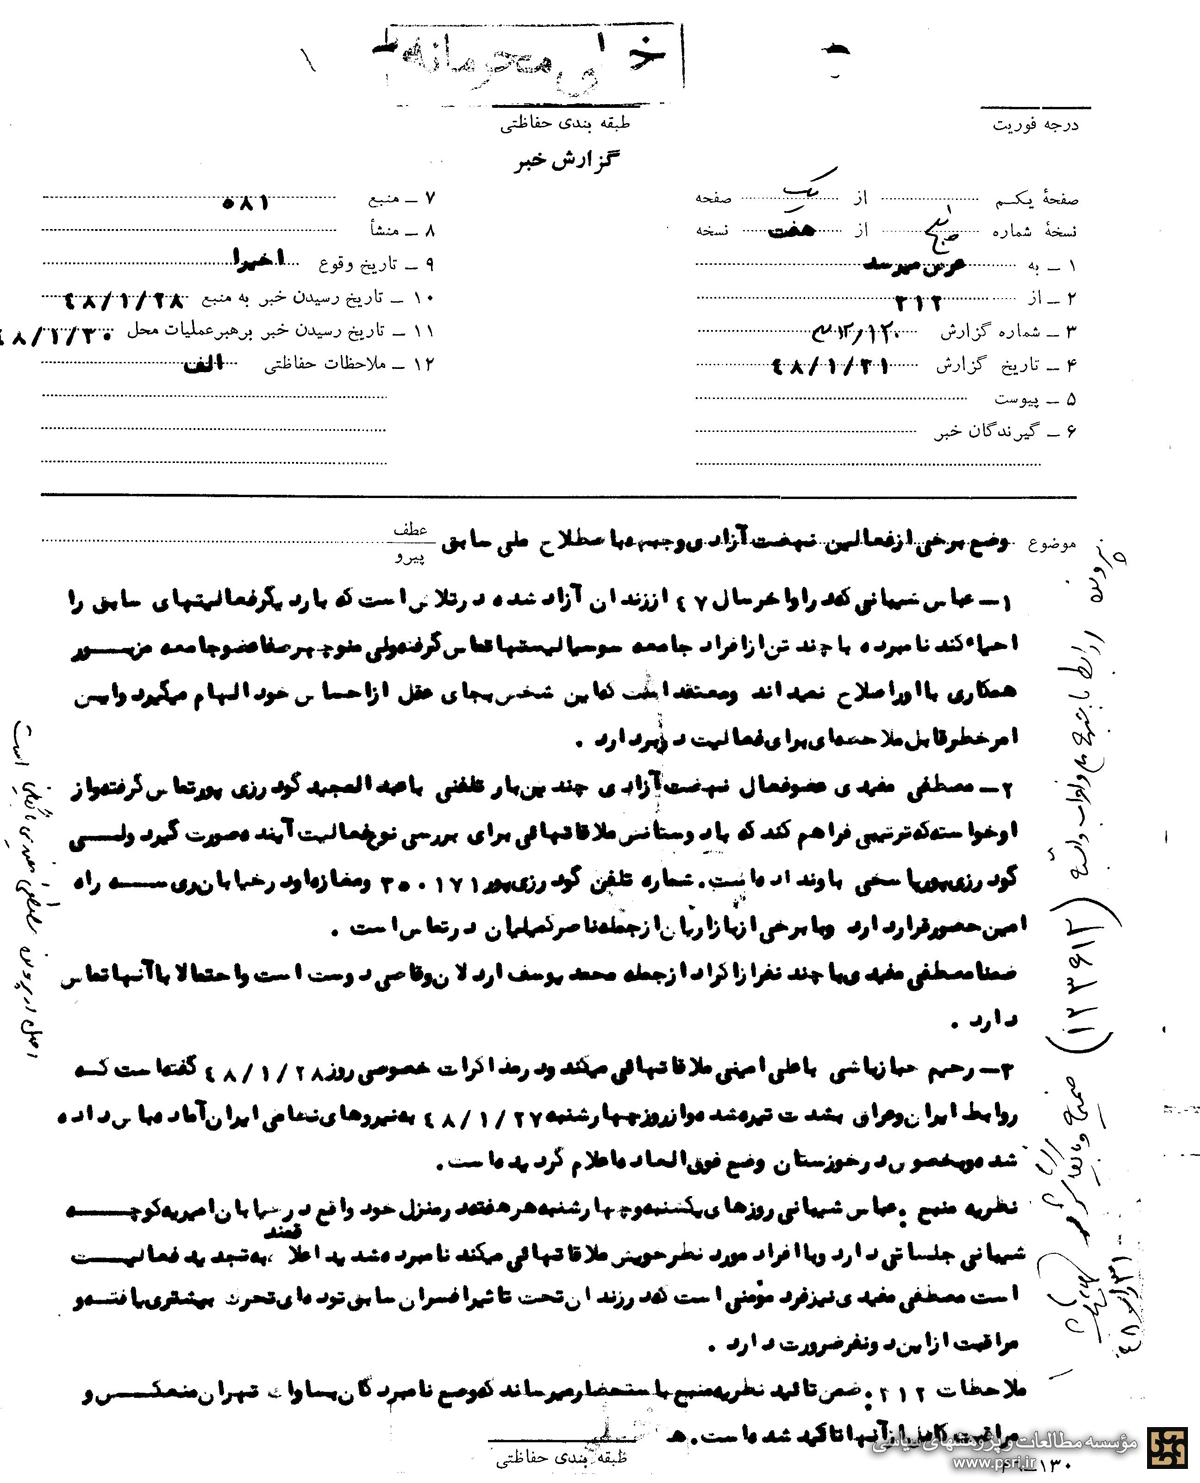 خیلی محرمانه
طبقه بندی حفاظتی
درجه فوریت
گزارش خبر
صفحهٔ یکم از یک صفحه
نسخهٔ شماره از هفت نسخه
۱ ــ به عرض میرسد
۲ ــ از ۳۱۲
۳ ــ شماره گزارش
۴ ــ تاریخ گزارش ۴۸/۱/۳۱
۵ ــ پیوست
۶ ــ گیرندگان خبر
۷ ــ منبع ۵۸۱
۸ ــ منشأ
۹ ــ تاریخ وقوع اخیرا
۱۰ ــ تاریخ رسیدن خبر به منبع ۴۸/۱/۲۸
۱۱ ــ تاریخ رسیدن خبر برهبرعملیات محل ۴۸/۱/۳۰
۱۲ ــ ملاحظات حفاظتی الف
موضوع وضع برخی ازفعالین نهضت آزادی وجبهه باصطلاح ملی سابق
عطف
پیرو
۱ــ عباس شیبانی که در اواخر سال ۴۷ اززندان آزاد شده درتلاش است که باردیگر فعالیتهای سابق را
احیاء کند نامبرده با چند تن ازافراد جامعه سوسیالیستها تماس گرفته ولی منوچهر صفا عضوجامعه مزبـــور
همکاری با اورا صلاح نمیداند ومعتقد است که این شخص بجای عقل ازاحساس خود الهام میگیرد وایـس
امر خطر قابل ملاحظه ای برای فعالیت در بردارد .
۲ــ مصطفی مفیدی عضوفعال نهضت آزادی چندین بار تلفنی باعبدالمجید گودرزی پورتماس گرفته واز
اوخواسته که ترتیبی فراهم کند که با دوستانش ملاقاتهائی برای بررسی نوع فعالیت آینده صورت گیرد ولـــی
گودرزی پور پاسخی باونداده است. شماره تلفن گودرزی پور ۳۵۰۱۷۱ ومغازه اودرخیابان ری ــــ سه راه
امین حضورقراردارد وبا برخی ازبازاریان ازجمله ناصرکمیلیان درتماس است .
ضمنا مصطفی مفیدی با چند نفر ازاکراد ازجمله محمد یوسف اردلان وقاصی دوست است واحتمالا باآنها تماس
دارد .
۳ــ رحیم باعلی امینی ملاقاتهائی میکند ودر مذاکرات خصوصی روز ۴۸/۱/۲۸ گفته است کــه
روابط ایران وعراق بشدت تیره شده وازروزچهارشنبه ۴۸/۱/۲۷ به نیروهای نظامی ایران آماده باش داده
شده وبخصوص درخوزستان وضع فوق العاده اعلام گردیده است.
نظریه منبع : عباس شیبانی روزهای یکشنبه وچهارشنبه هرهفته درمنزل خود واقع درخیابان امیریه کوچـــــه
شیبانی جلساتی دارد وباافراد مورد نظرخویش ملاقاتهائی میکند نامبرده شدیداعلاقمند به تجدید فعالیـــت
است مصطفی مفیدی نیزفرد مؤمنی است که درزندان تحت تاثیرافسران سابق توده ای تحرک بیشتری یافته و
مراقبت ازاین دونفرضرورت دارد .
ملاحظات ۳۱۲ : ضمن تائید نظریه منبع باستحضارمیرساند که وضع نامبردگان بساواک تهران منعکـــس و
مراقبت کامل ازآنها تاکید شده است. هـ
طبقه بندی حفاظتی
مؤسسه مطالعات و پژوهشهای سیاسی
www.psri.ir